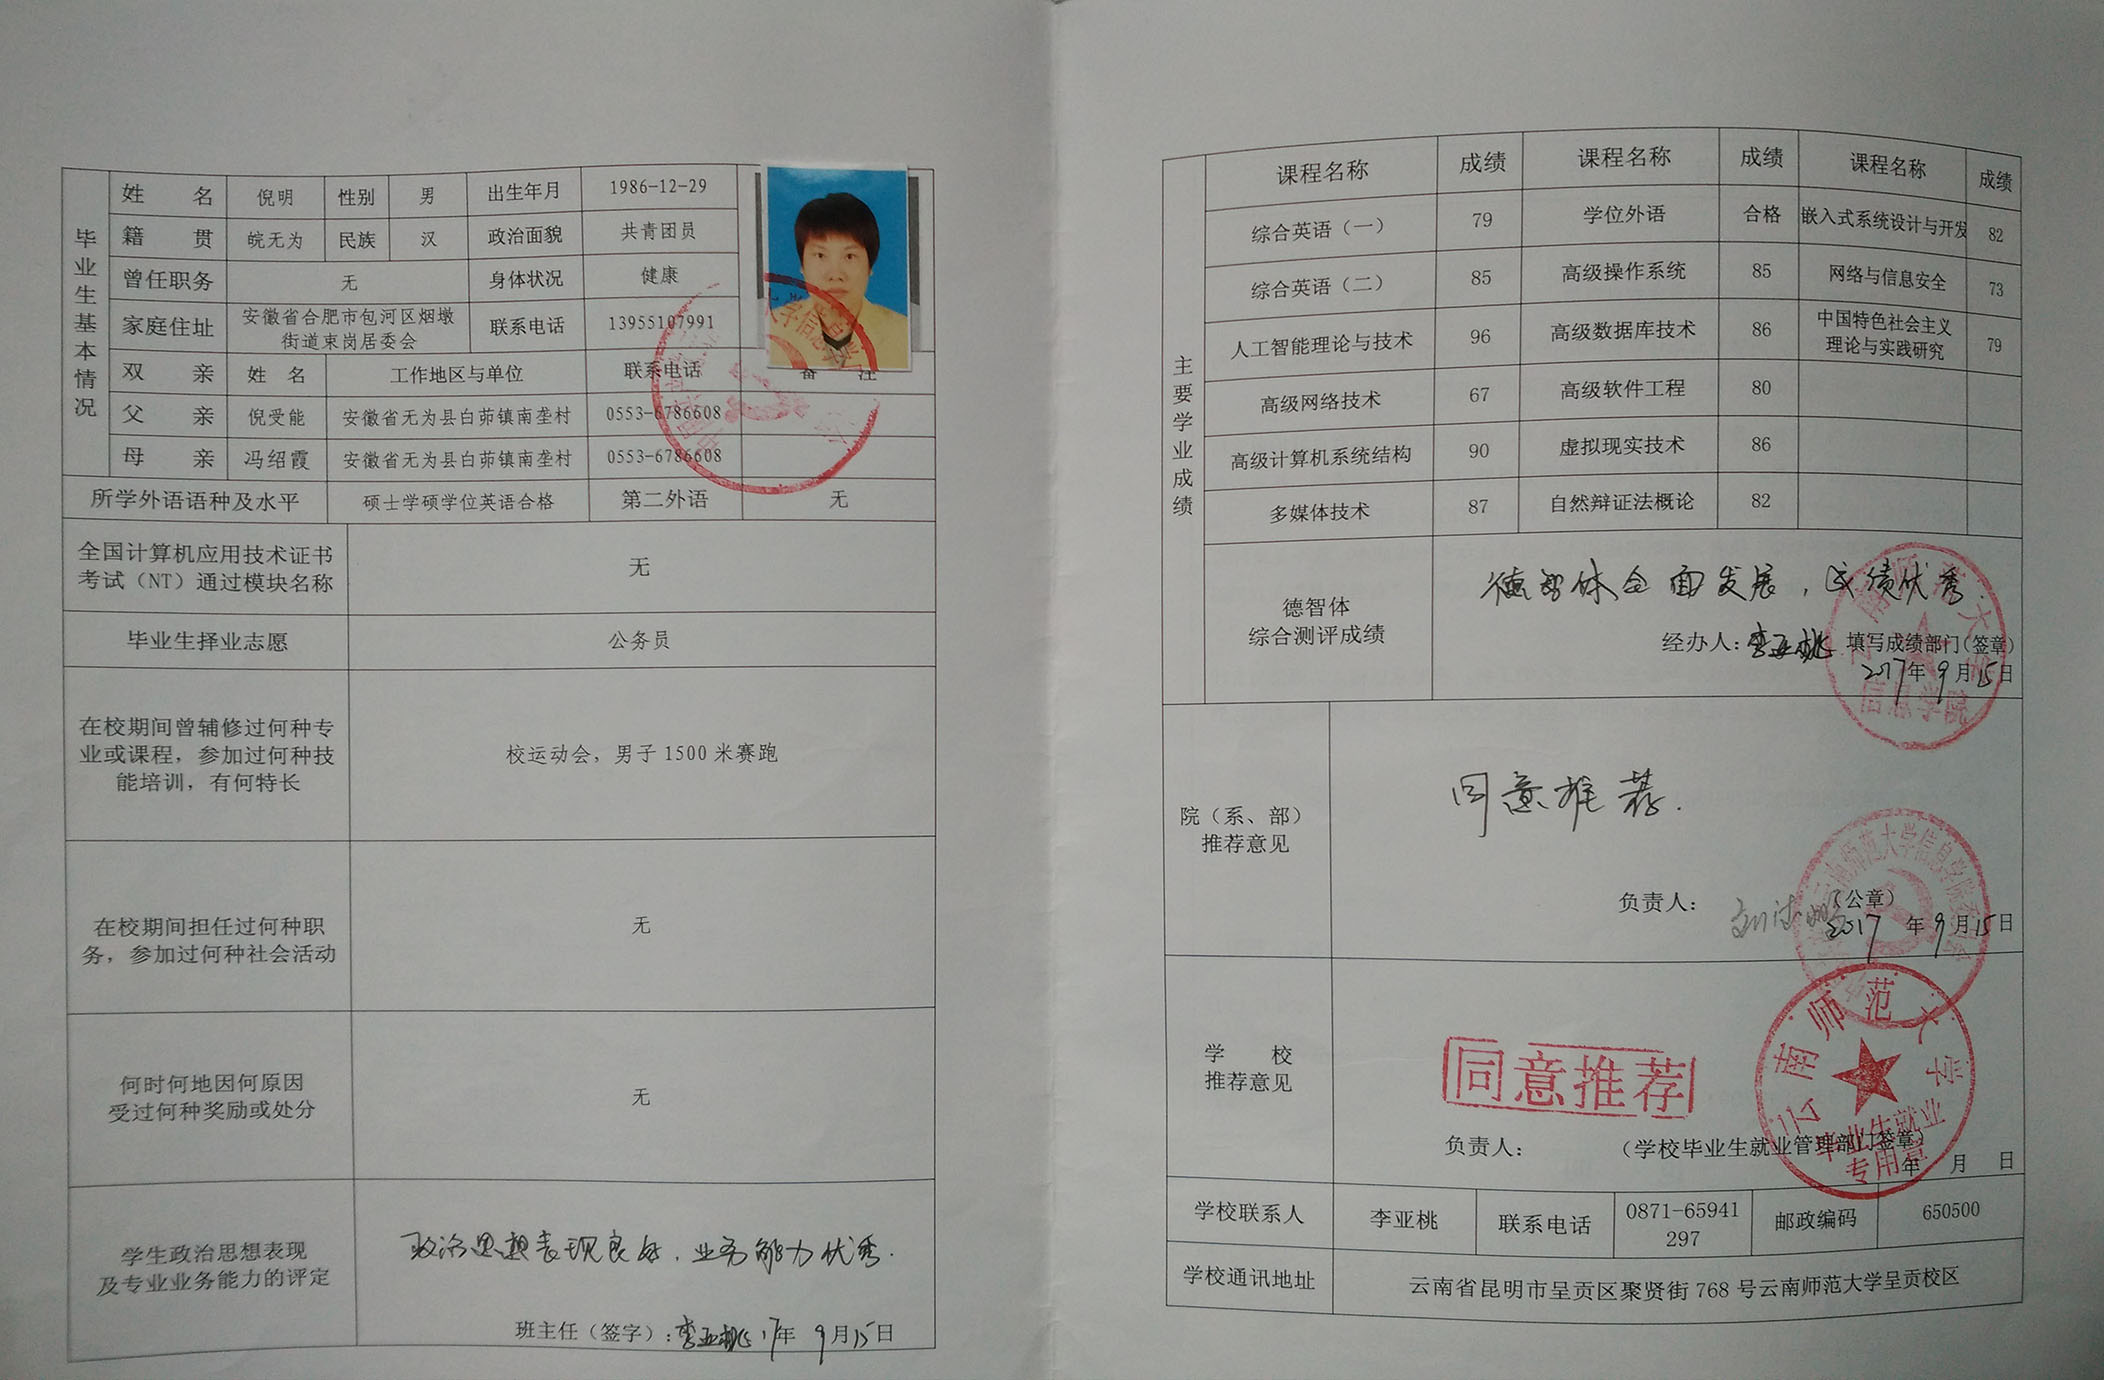 毕业生基本情况
姓 名 倪明 性别 男 出生年月 1986-12-29
籍 贯 皖无为 民族 汉 政治面貌 共青团员
曾任职务 无 身体状况 健康
家庭住址 安徽省合肥市包河区烟墩 联系电话 13955107991
街道束岗居委会
双 亲 姓 名 工作地区与单位 联系电话 备 注
父 亲 倪受能 安徽省无为县白茆镇南垄村 0553-6786608
母 亲 冯绍霞 安徽省无为县白茆镇南垄村 0553-6786608
所学外语语种及水平 硕士学硕学位英语合格 第二外语 无
全国计算机应用技术证书
考试（NT）通过模块名称 无
毕业生择业志愿 公务员
在校期间曾辅修过何种专
业或课程，参加过何种技 校运动会，男子1500米赛跑
能培训，有何特长
在校期间担任过何种职 无
务，参加过何种社会活动
何时何地因何原因 无
受过何种奖励或处分
学生政治思想表现 政治思想表现良好，业务能力优秀.
及专业业务能力的评定
班主任（签字）：李亚桃 17年 9月15日
主要学业成绩
课程名称 成绩 课程名称 成绩 课程名称 成绩
综合英语（一） 79 学位外语 合格 嵌入式系统设计与开发 82
综合英语（二） 85 高级操作系统 85 网络与信息安全 73
人工智能理论与技术 96 高级数据库技术 86 中国特色社会主义 79
理论与实践研究
高级网络技术 67 高级软件工程 80
高级计算机系统结构 90 虚拟现实技术 86
多媒体技术 87 自然辩证法概论 82
德智体 德智体全面发展，成绩优秀.
综合测评成绩
经办人：李亚桃 填写成绩部门（签章）
2017年9月15日
云南师范大学
信息学院
院（系、部） 同意推荐.
推荐意见
负责人： （公章）
2017年9月15日
云南师范大学信息学院
学 校 同意推荐
推荐意见
负责人： （学校毕业生就业管理部门签章）
年 月 日
云南师范大学
毕业生就业
专用章
学校联系人 李亚桃 联系电话 0871-65941 邮政编码 650500
297
学校通讯地址 云南省昆明市呈贡区聚贤街768号云南师范大学呈贡校区